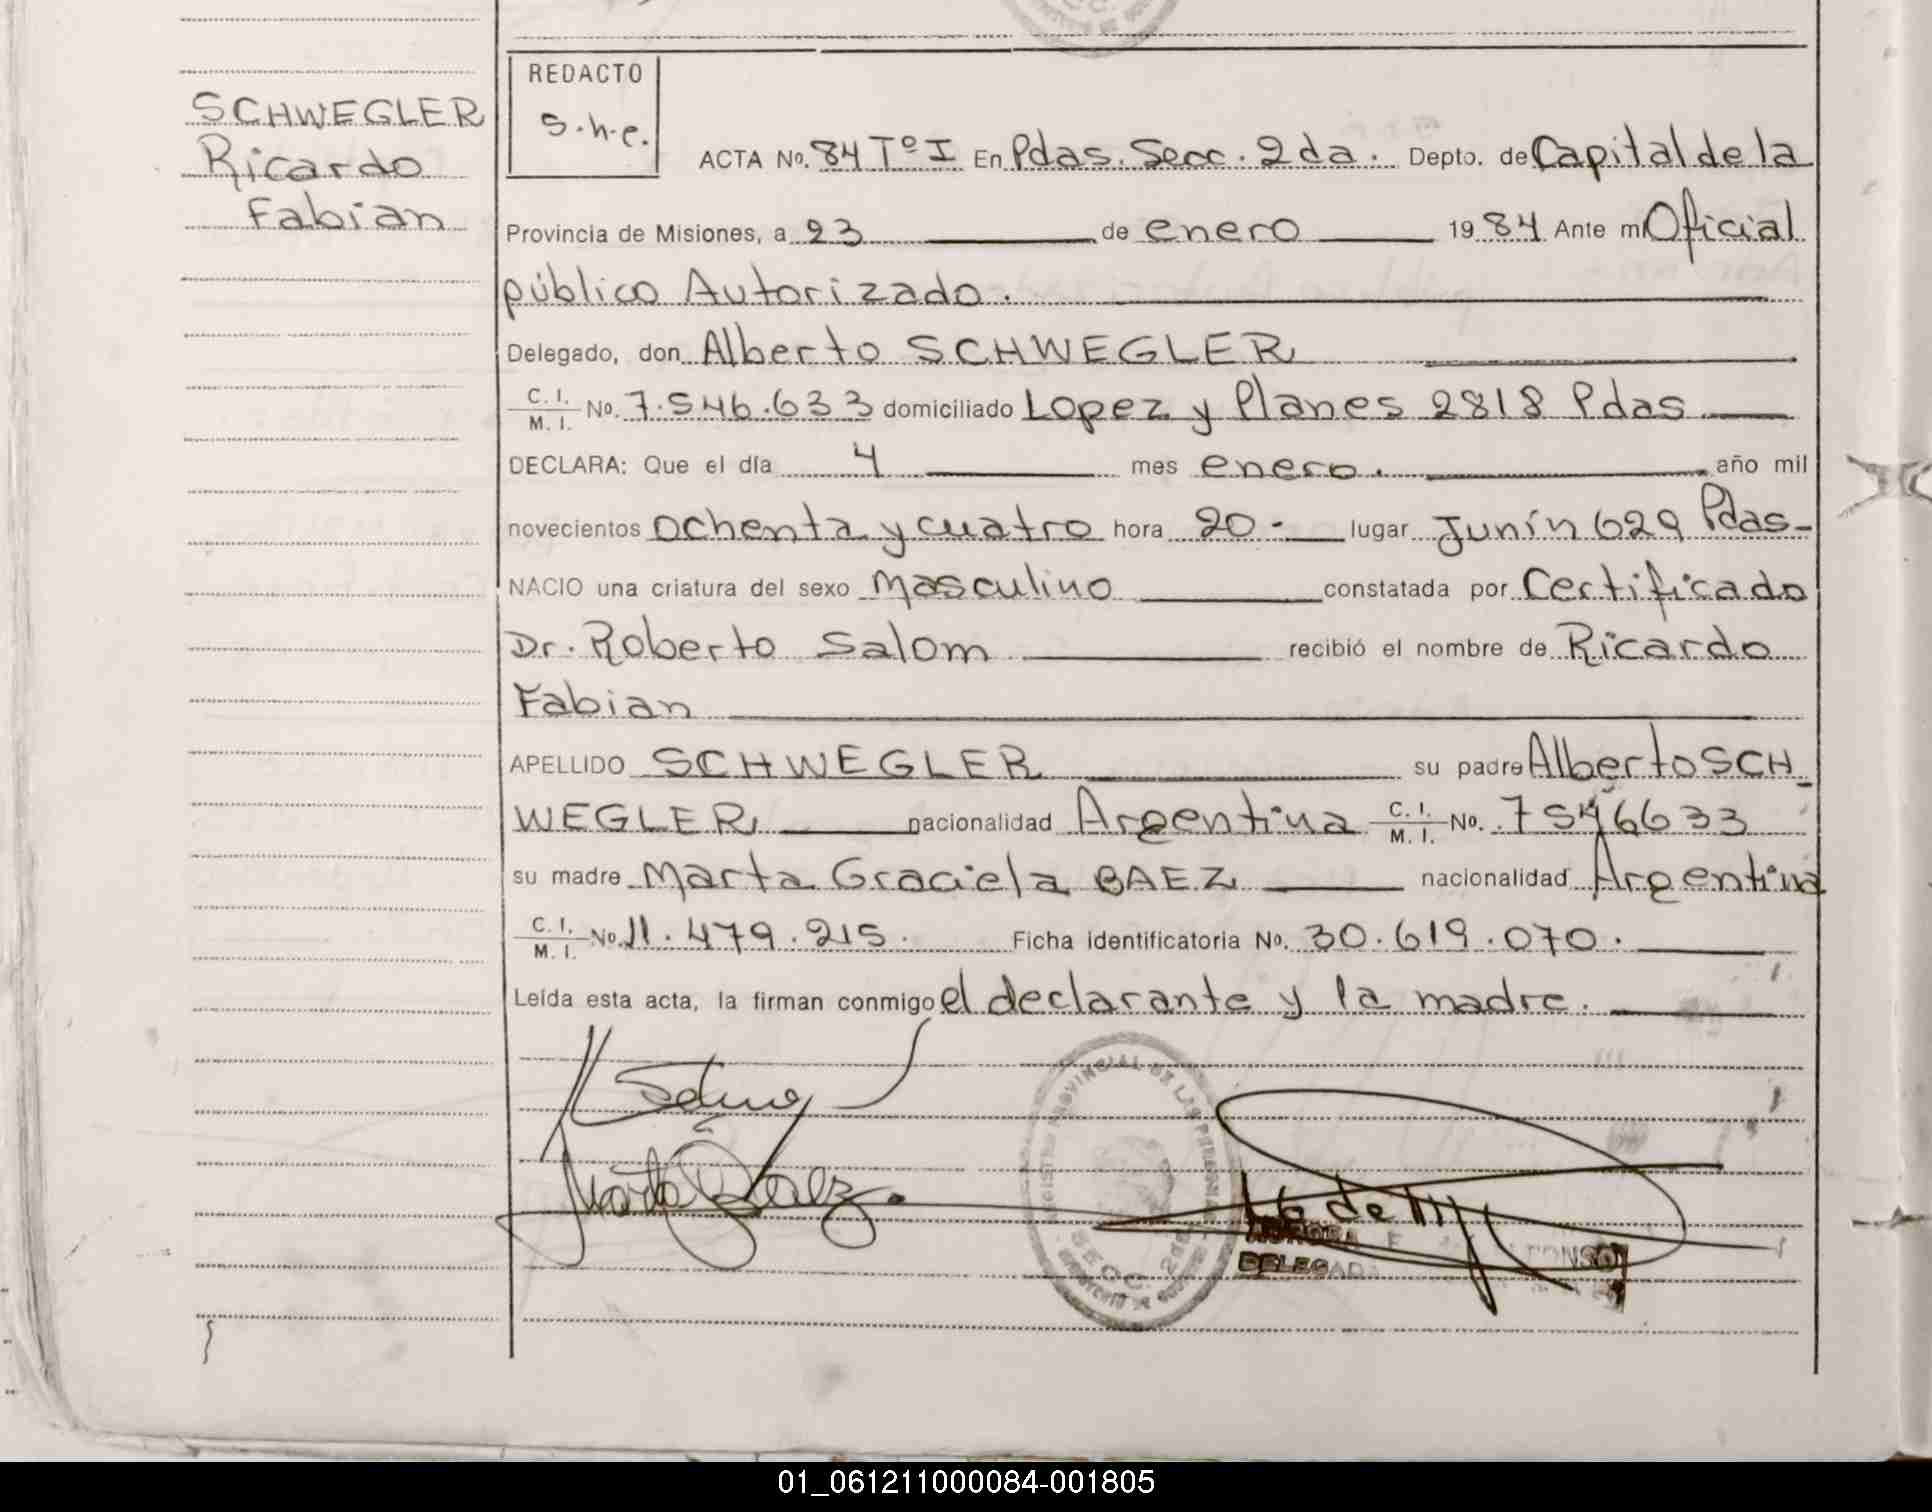 SCHWEGLER
Ricardo
Fabian
REDACTO
S.h.e.
ACTA No. 84 Tº I En Pdas. Secc. 2da. Depto. de Capital de la
Provincia de Misiones, a 23 de enero 1984 Ante mi Oficial
público Autorizado.
Delegado, don Alberto SCHWEGLER
C. I. / M. I. No. 7.546.633 domiciliado Lopez y Planes 2818 Pdas
DECLARA: Que el día 4 mes enero. año mil
novecientos ochenta y cuatro hora 20- lugar Junín 629 Pdas-
NACIO una criatura del sexo Masculino constatada por Certificado
Dr. Roberto Salom recibió el nombre de Ricardo
Fabian
APELLIDO SCHWEGLER su padre Alberto SCH-
WEGLER nacionalidad Argentina C. I. / M. I. No. 7546633
su madre Marta Graciela BAEZ nacionalidad Argentina
C. I. / M. I. No. 11.479.215. Ficha identificatoria No. 30.619.070.
Leída esta acta, la firman conmigo el declarante y la madre.
Marta Baez.
REGISTRO PROVINCIAL DE LAS PERSONAS
SECC. 2da
DELEGADA
01_061211000084-001805